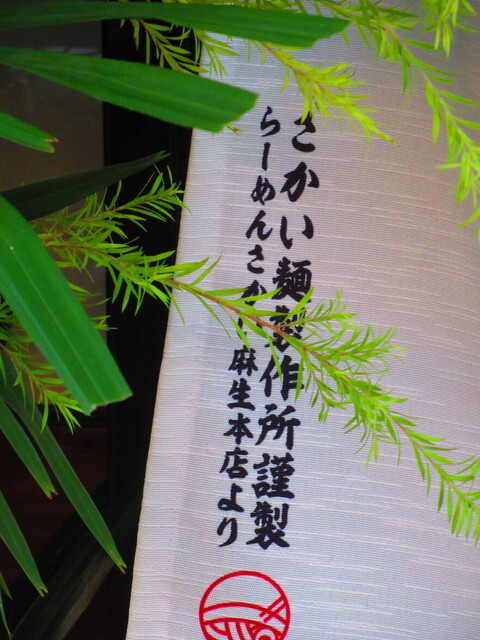 さかい麺製作所謹製
らーめんさかい麻生本店より